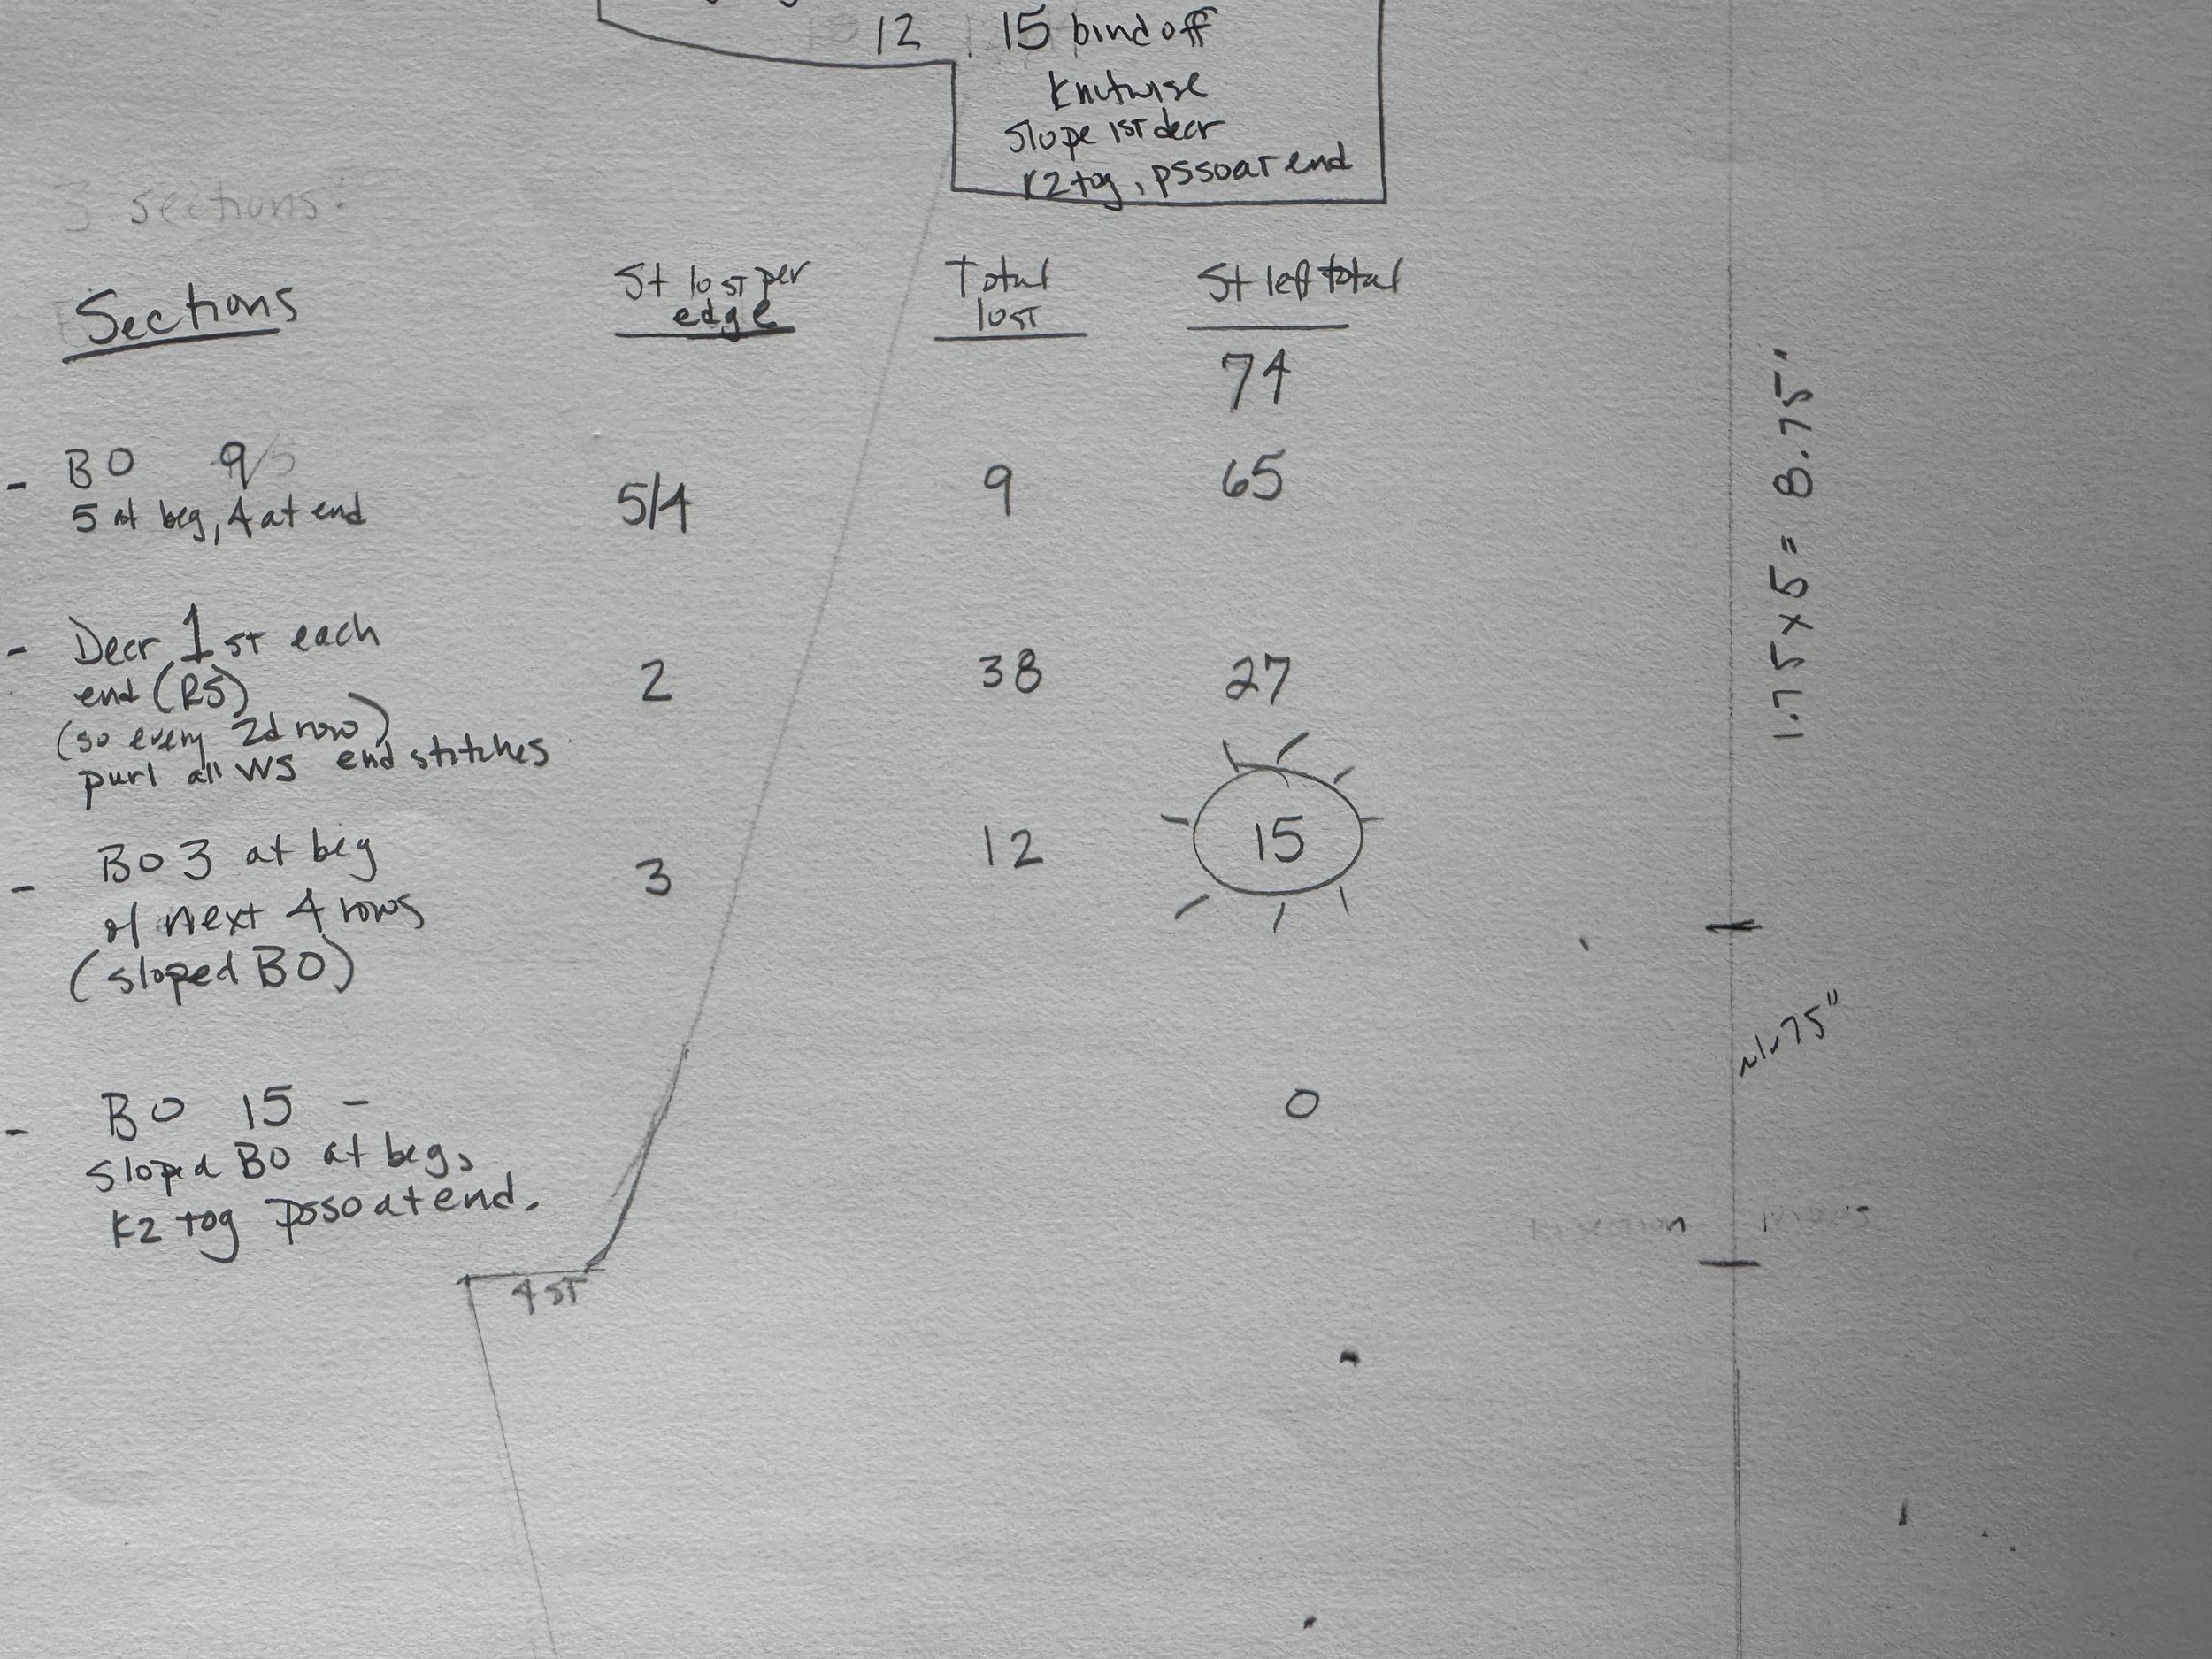 12 15 bind off
Knitwise
Slope 1st decr
K2tog, psso at end
3 sections:
Sections
St lost per
edge
Total
lost
St left total
74
- BO 9
5 at beg, 4 at end
5/4
9
65
- Decr 1 st each
end (RS)
(so every 2d row)
purl all WS end stitches
2
38
27
- BO 3 at beg
of next 4 rows
(sloped BO)
3
12
15
- BO 15 -
sloped BO at beg,
K2 tog psso at end.
0
4 ST
1.75 x 5 = 8.75"
~1.75"